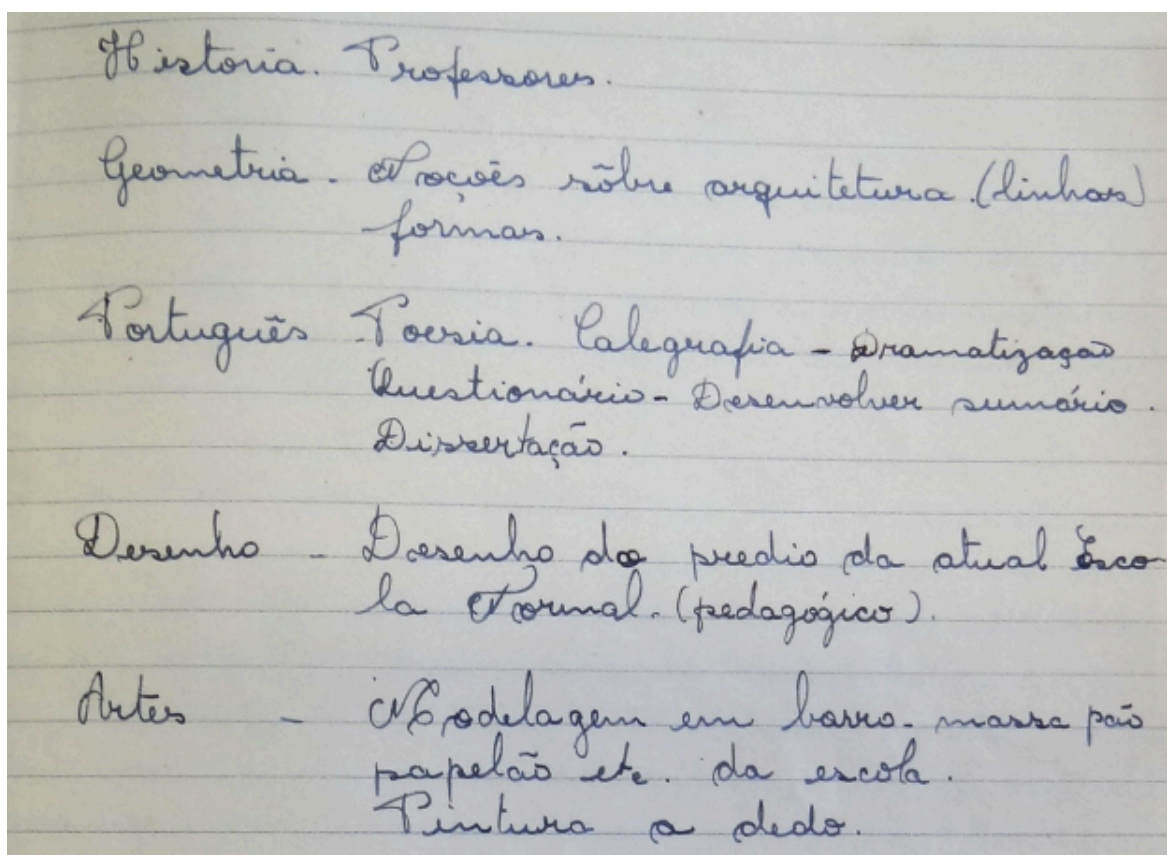 Historia. Professores.
Geometria - Noções sôbre arquitetura. (linhas)
formas.
Português - Poesia. Calegrafia - Dramatização
Questionário - Desenvolver sumário.
Dissertação.
Desenho - Desenho do predio da atual Esco-
la Normal. (pedagógico).
Artes - Modelagem em barro - massa pão
papelão etc. da escola.
Pintura a dedo.